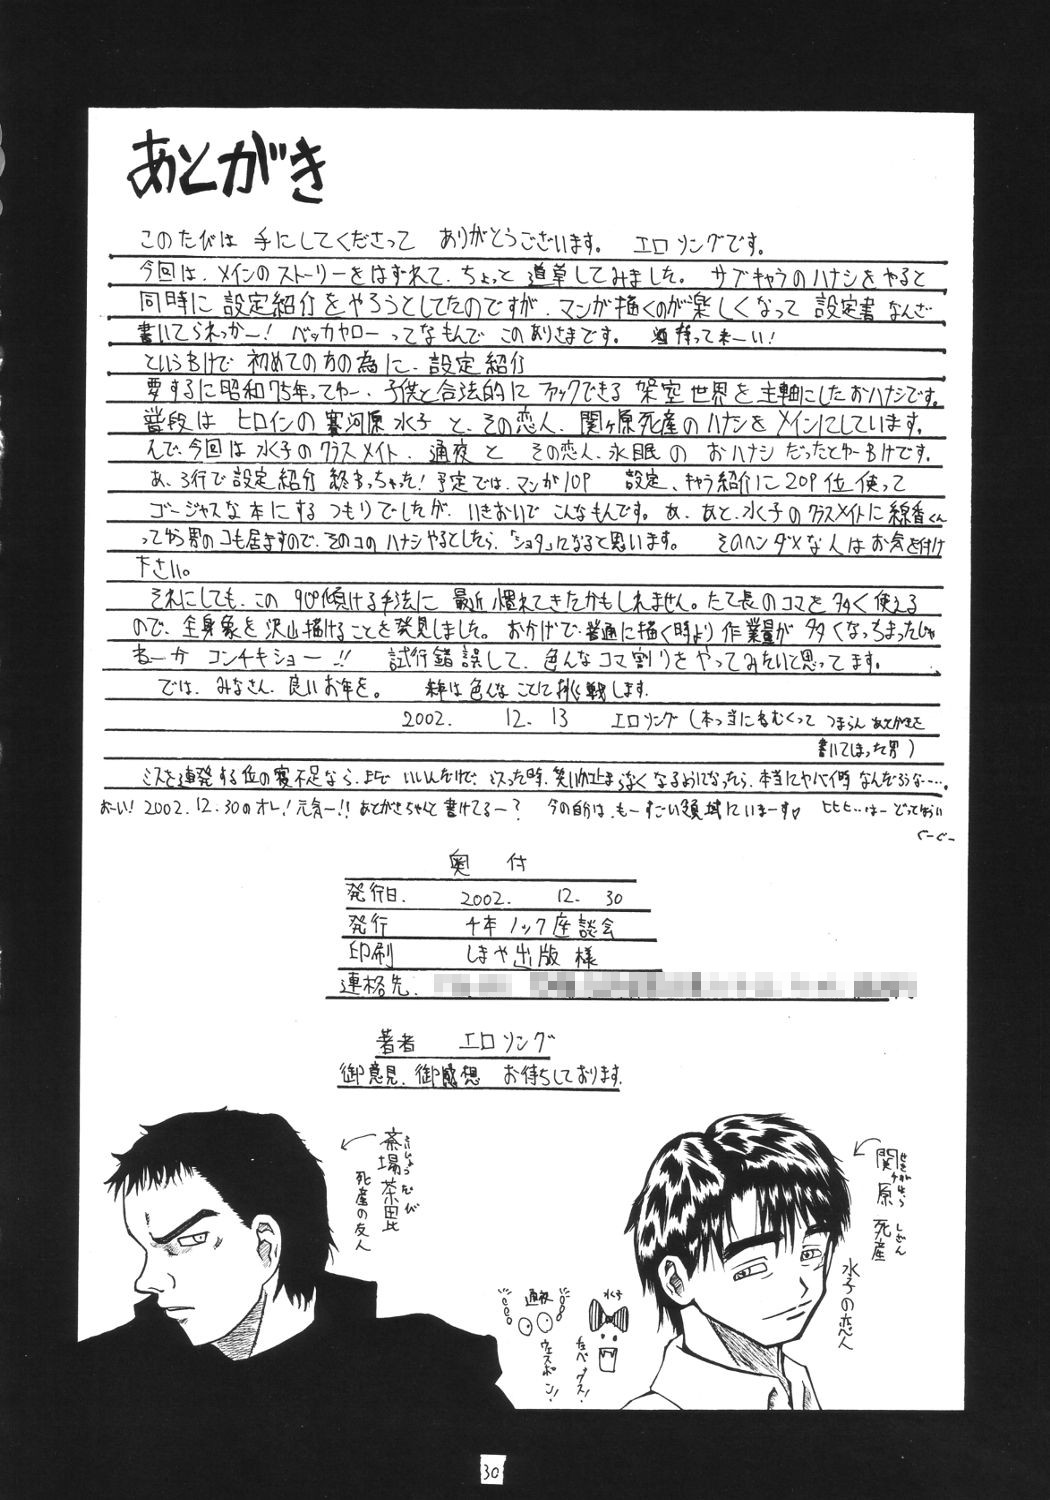 あとがき
このたびは 手にしてくださって ありがとうございます。 エロソングです。
今回は、メインのストーリーをはずれて、ちょっと道草してみました。サブキャラのハナシをやると
同時に設定紹介をやろうとしてたのですが、マンガ描くのが楽しくなって 設定書なんざ
書いてられっかー！ バッカヤローってなもんで このありさまです。 酒持って来ーい！
というわけで 初めての方の為に、設定紹介
要するに昭和75年ってゆー、子供と合法的にファックできる架空世界を主軸にしたおハナシです。
普段は ヒロインの賽河原水子と、その恋人、関ヶ原死産のハナシをメインにしています。
んで、今回は水子のクラスメイト、通夜と その恋人、永眠の おハナシだったとゆーわけです。
あ、3行で設定紹介 終わっちゃった！予定では、マンガ10P 設定、キャラ紹介に20P位使って
ゴージャスな本にするつもりでしたが、いきおいでこんなもんです。あ、あと、水子のクラスメイトに線香くん
って男のコも居ますので、そのコのハナシやるとしたら、「ショタ」になると思います。 そのヘンダメな人はお気を付け
下さい。
それにしても、この90°傾ける手法に 最近慣れてきたかもしれません。たて長のコマを多く使える
ので、全身象を沢山描けることを発見しました。おかげで、普通に描く時より作業量が多くなっちまったじゃ
ねーか コンチキショー!! 試行錯誤して、色んなコマ割りをやってみたいと思ってます。
では、みなさん、良いお年を。 来年は色んなことに挑戦します。
2002. 12. 13 エロソング（本っ当にねむくって つまらんあとがきを
書いてしまった男）
ミスを連発する位の寝不足なら、まだ いいんだけど、ミスった時、笑いが止まらなくなるようになったら、本当にヤバイ時なんだろうな……。
おーい！2002.12.30のオレ！元気ー!! あとがきちゃんと書けてるー？ 今の自分は、もーすごい領域にいまーす♡ ヒヒヒ…はー どってもらい
ぐーぐー
奥付
発行日. 2002. 12. 30
発行 千本ノック座談会
印刷 しまや出版 様
連絡先.
著者 エロソング
御意見、御感想 お待ちしております.
茶場 茶毘
死産の友人
通夜
ウェスポン！
水子
関ヶ原 死産
せきがはら しざん
水子の恋人
30